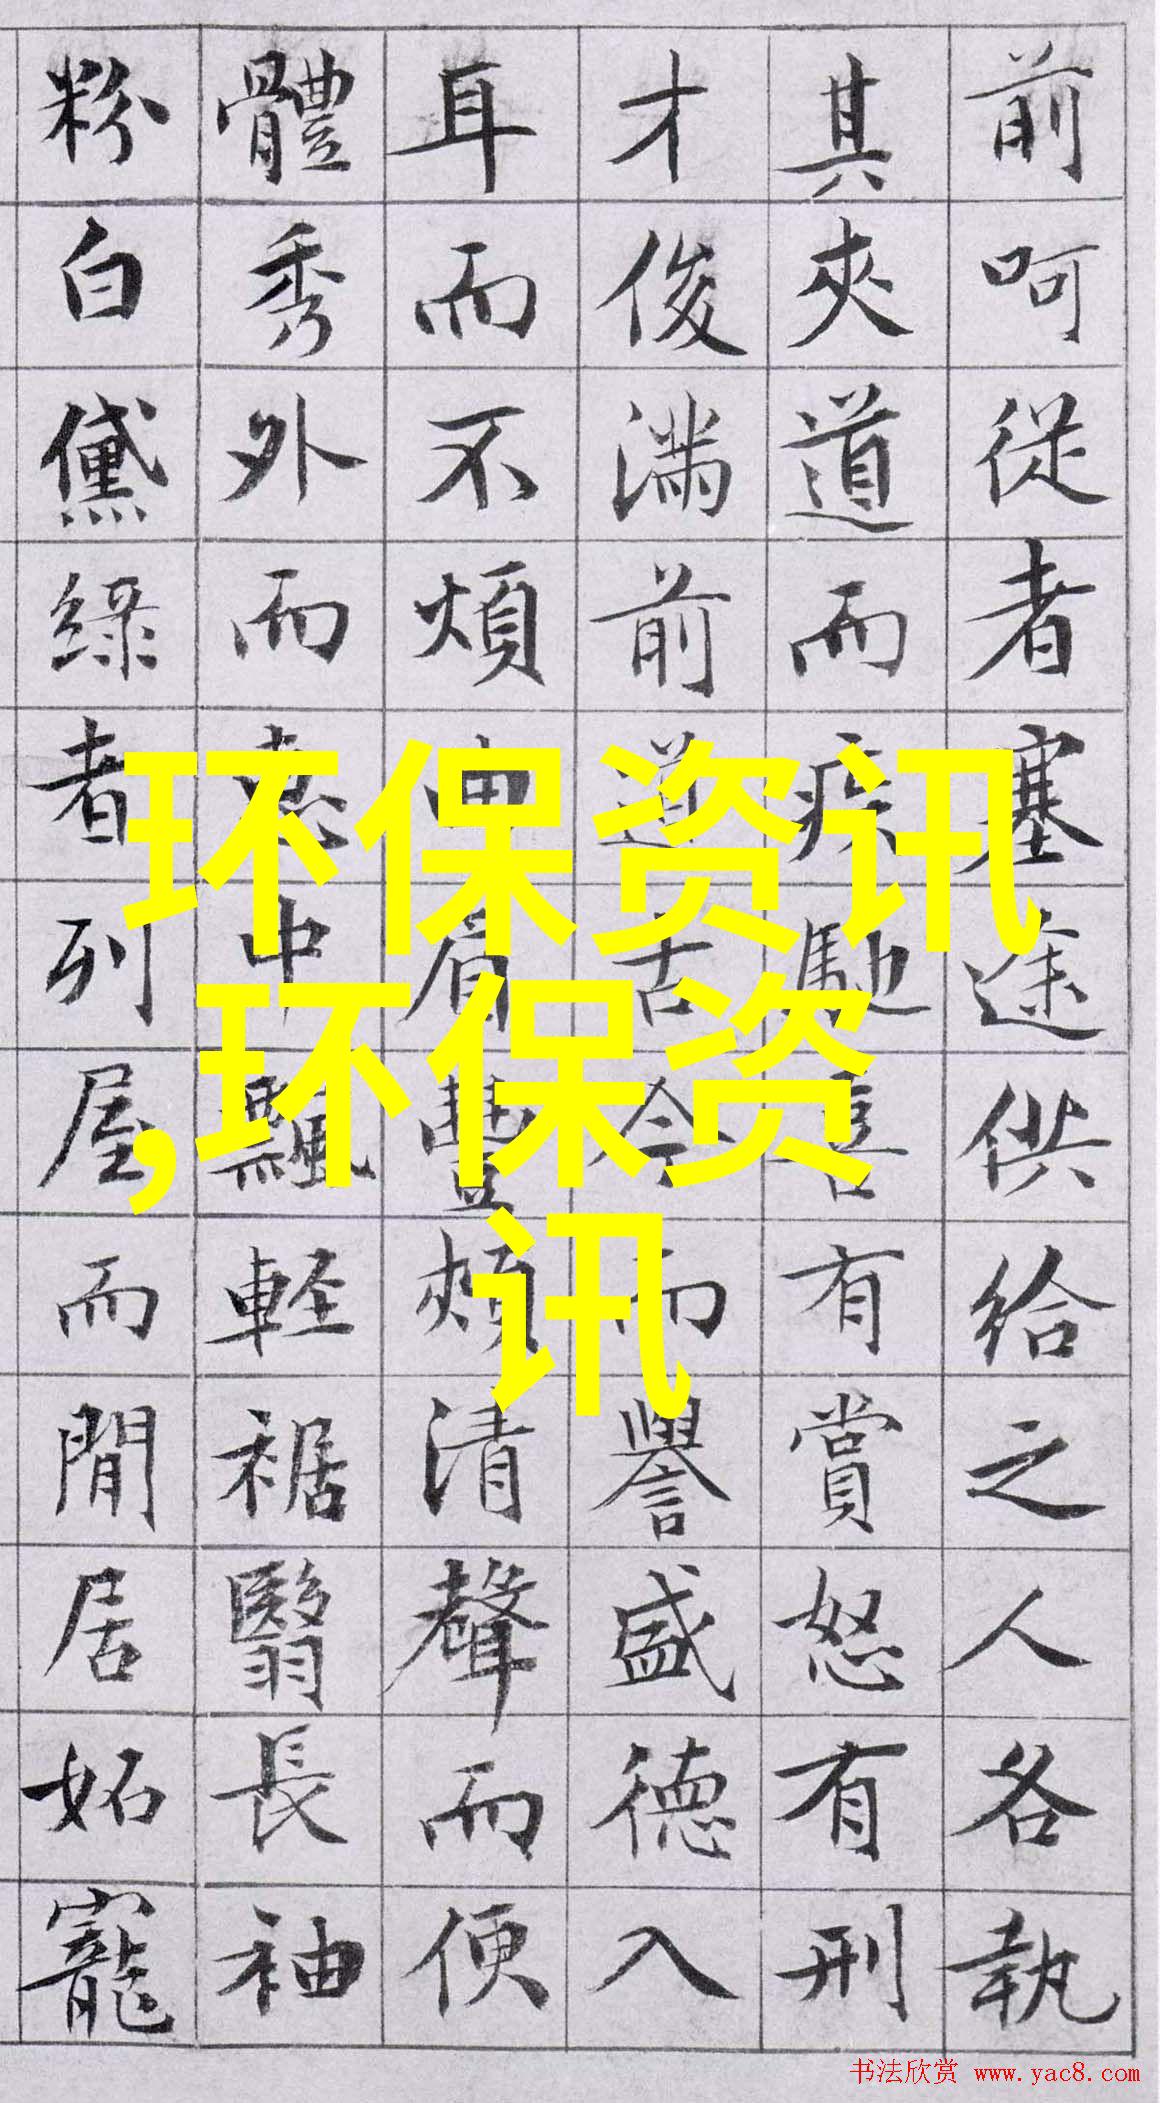 前呵從者塞途供給之人各執
其夾道而疾馳喜有賞怒有刑
才俊满前道古今而譽盛德入
耳而不煩曲眉豐頰清聲而便
體秀外而惠中飄輕裾翳長袖
粉白黛綠者列屋而閒居妬寵
环保资讯
,环保资
讯
书法欣赏 www.yac8.com